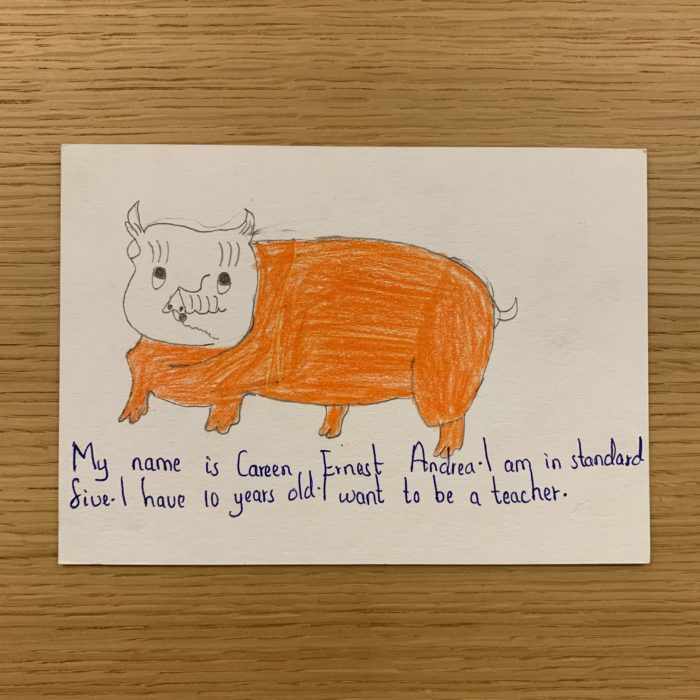 My name is Careen Ernest Andrea. I am in standard
five. I have 10 years old. I want to be a teacher.